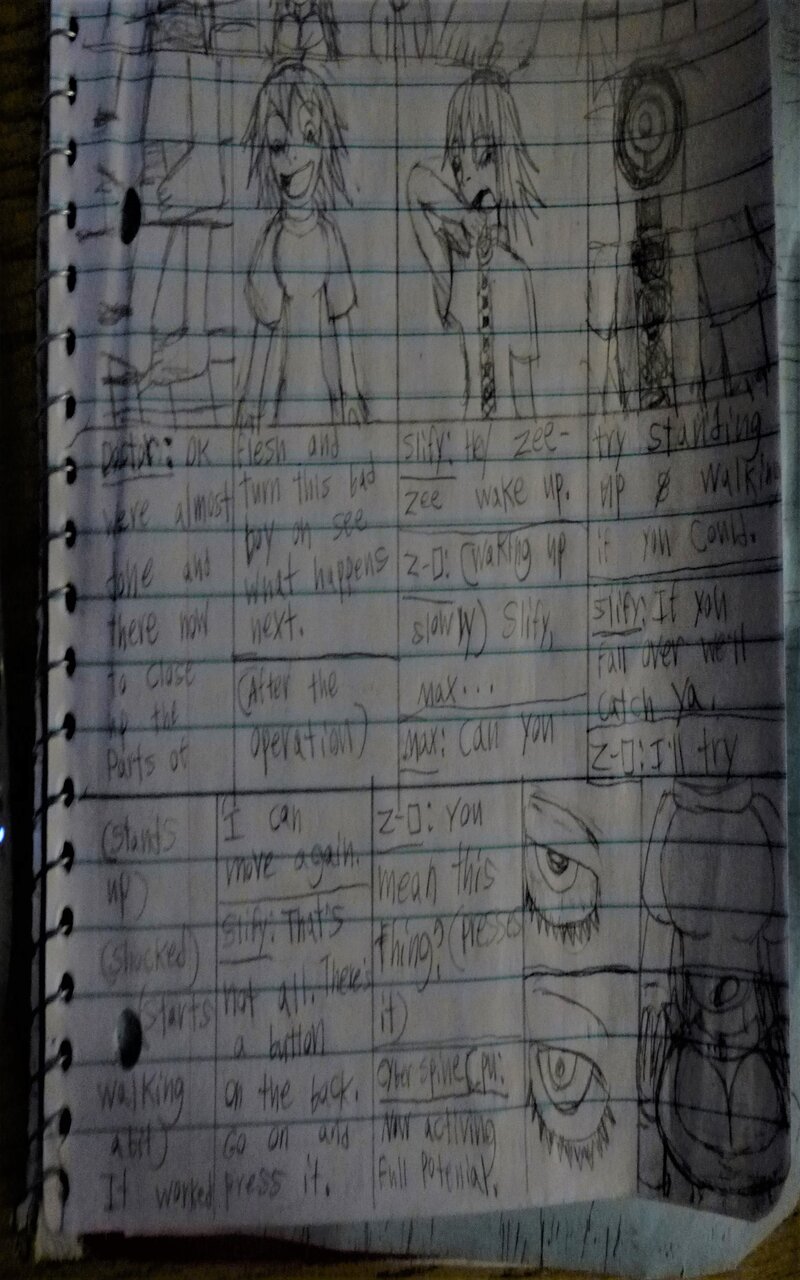 Doctor: OK
were almost
done and
there now
to close
up the
Parts of
flesh and
turn this bad
boy on see
what happens
next.
(After the
operation)
Slify: Hey Zee-
zee wake up.
Z-0: (Waking up
slowly) Slify,
Max...
Max: Can you
try standing
up & walking
if you could.
Slify: If you
fall over we'll
catch ya.
Z-0: I'll try
(Stands
up)
(shocked)
(Starts
walking
abit)
It worked
I can
move again.
Slify: That's
not all. There's
a button
on the back.
Go on and
press it.
Z-0: You
mean this
thing? (Presses
it)
Cyber spine Cpu:
Now activing
Full Potential.